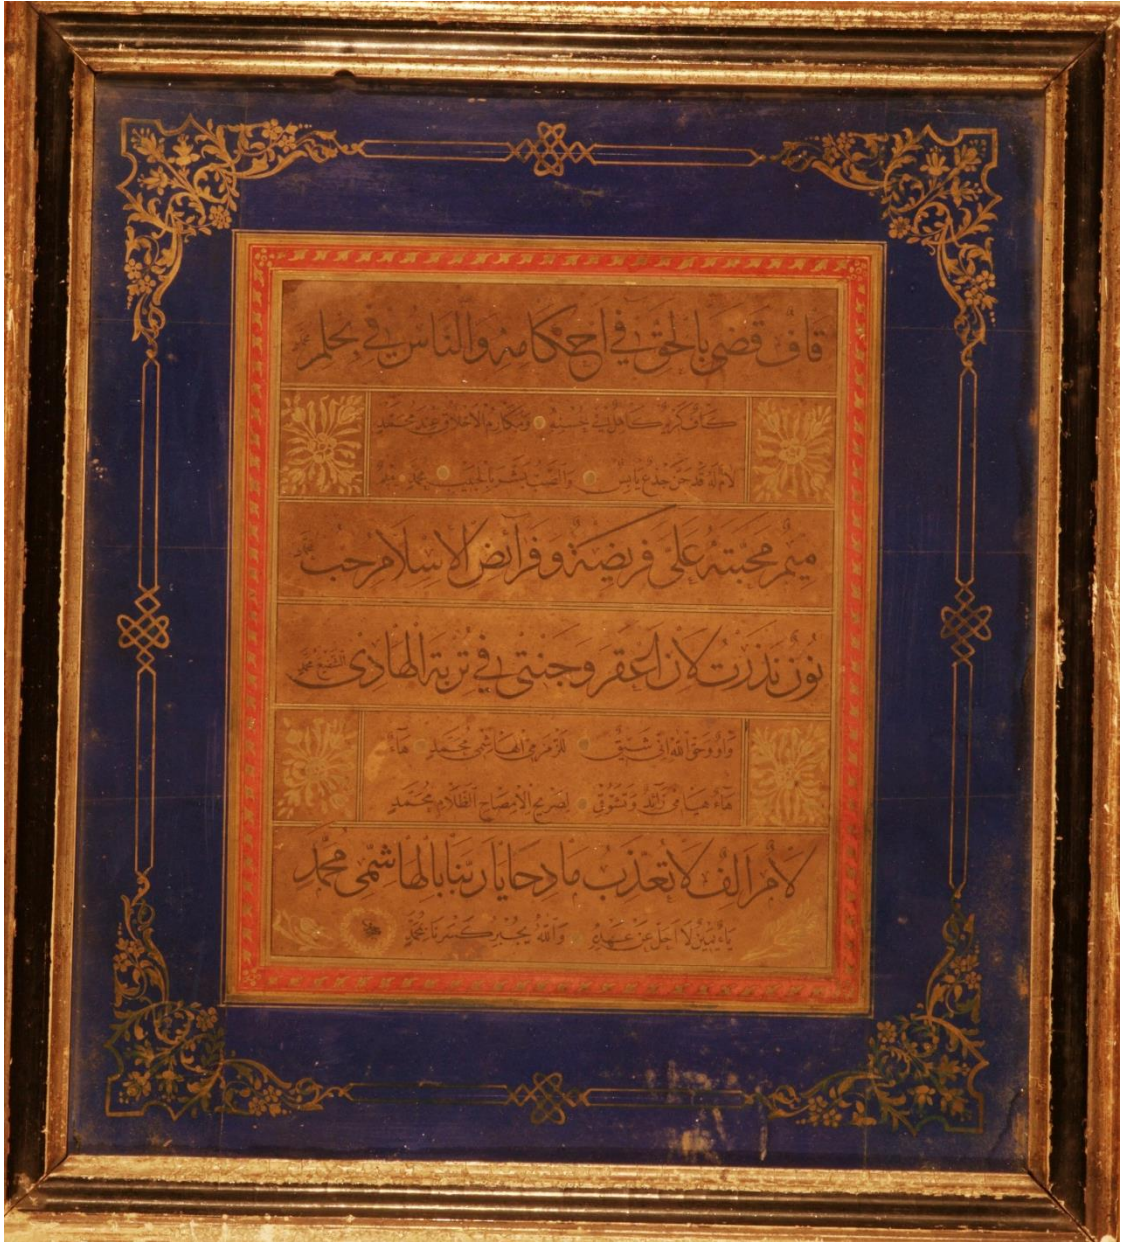 قاف قضى بالحق في احكامه والناس في بحلم محمد
كاف كريم كامل في حسنه ومكارم الاخلاق عند محمد
لام له قد حن جذع يابس والضب بشر بالحبيب محمد ميم
ميم محبته على فريضة وفرائض الاسلام حب محمد
نون نذرت لان اعفر وجنتي في تربة الهادي الشفيع محمد
واو وحق الله اني شيق للزمزمي الهاشمي محمد هاء
هاء هيامي زائد وتشوقي لضريح الامصباح الظلام محمد
لام الف لا تعذب مادحا ياربنا بالهاشمي محمد
ياء يمين لا احل عن عهده والله يجبر كسرنا بمحمد